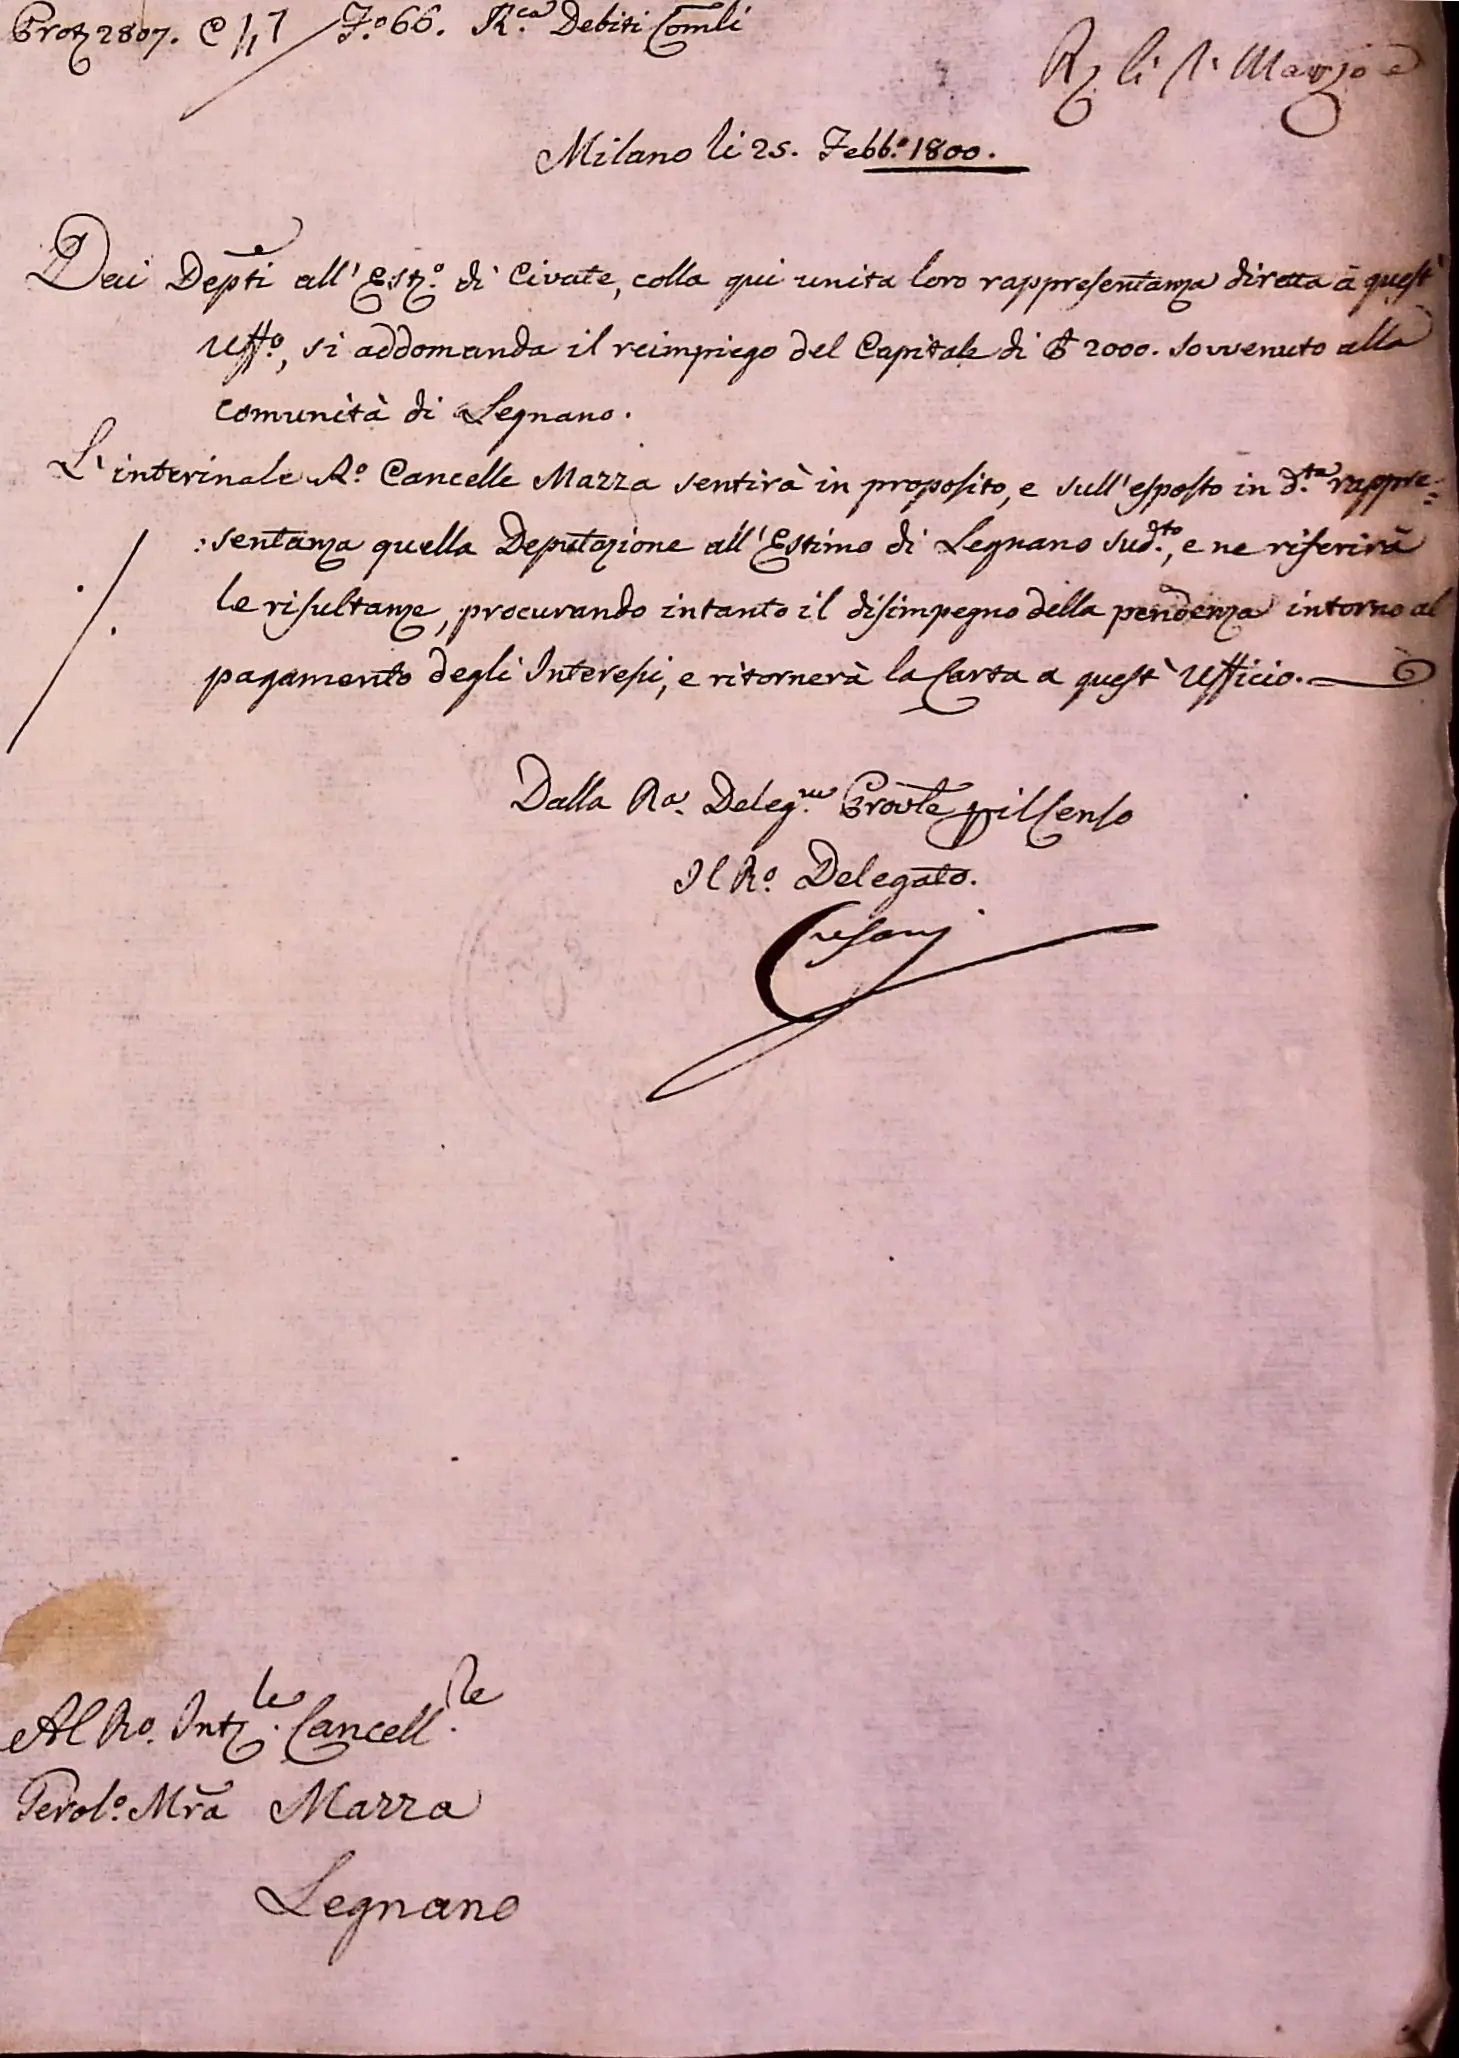 Protz 2807. C 47 F.o 66. R.ca Debiti Comli
Rz li 1: Marzo
Milano li 25. Febb.o 1800.
Dai Depti all'Estz.o di Civate, colla qui unita loro rappresentanza diretta à quest'
Uff.o, si addomanda il reimpiego del Capitale di £ 2000. sovvenuto alla
Comunità di Legnano.
L'interinale R.o Cancelle Mazza sentirà in proposito, e sull'esposto in d.ta rappre=
:sentanza quella Deputazione all'Estimo di Legnano sud.to, e ne riferirà
le risultanze, procurando intanto il disimpegno della pendenza intorno al
pagamento degli Interessi, e ritornerà la Carta a quest'Ufficio.
Dalla Ra. Deleg.ne Provle pil Censo
Il R.o Delegato.
Al Ro. Intz.le Cancell.re
Mazza
Legnano